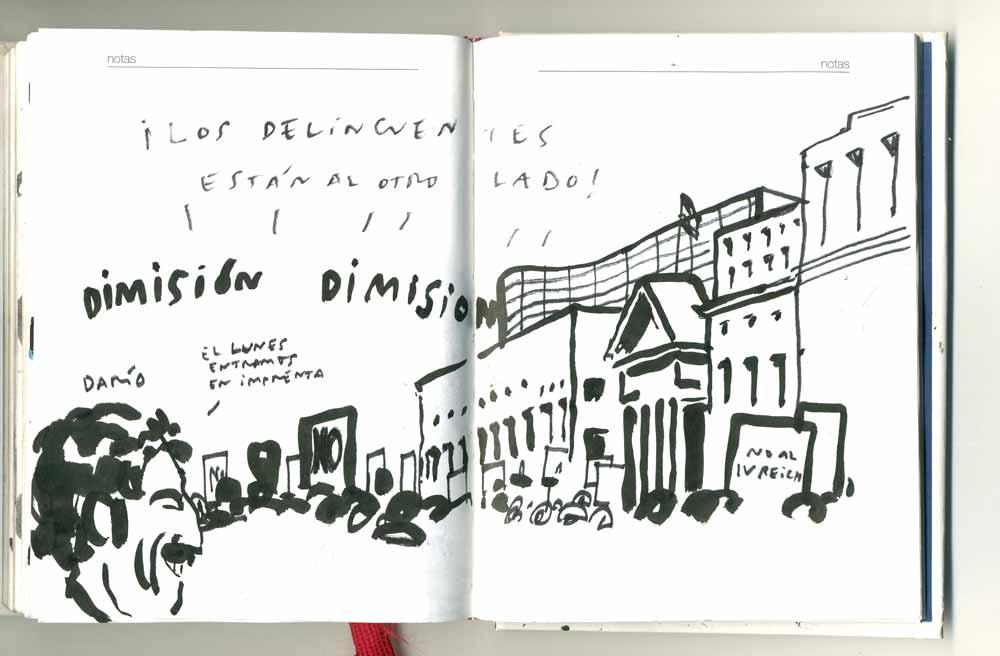 notas
notas
¡LOS DELINCUENTES
ESTÁN AL OTRO LADO!
DIMISIÓN DIMISION
EL LUNES
ENTRAMOS
EN IMPRENTA
DARÍO
NO
NO
NO AL
IV REICH